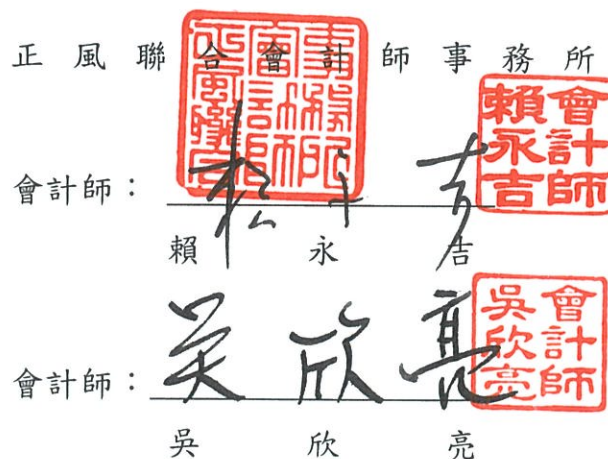 正風聯合會計師事務所
正風聯合會計師事務所
會計師
賴永吉
會計師：賴永吉
賴永吉
會計師
吳欣亮
會計師：吳欣亮
吳欣亮